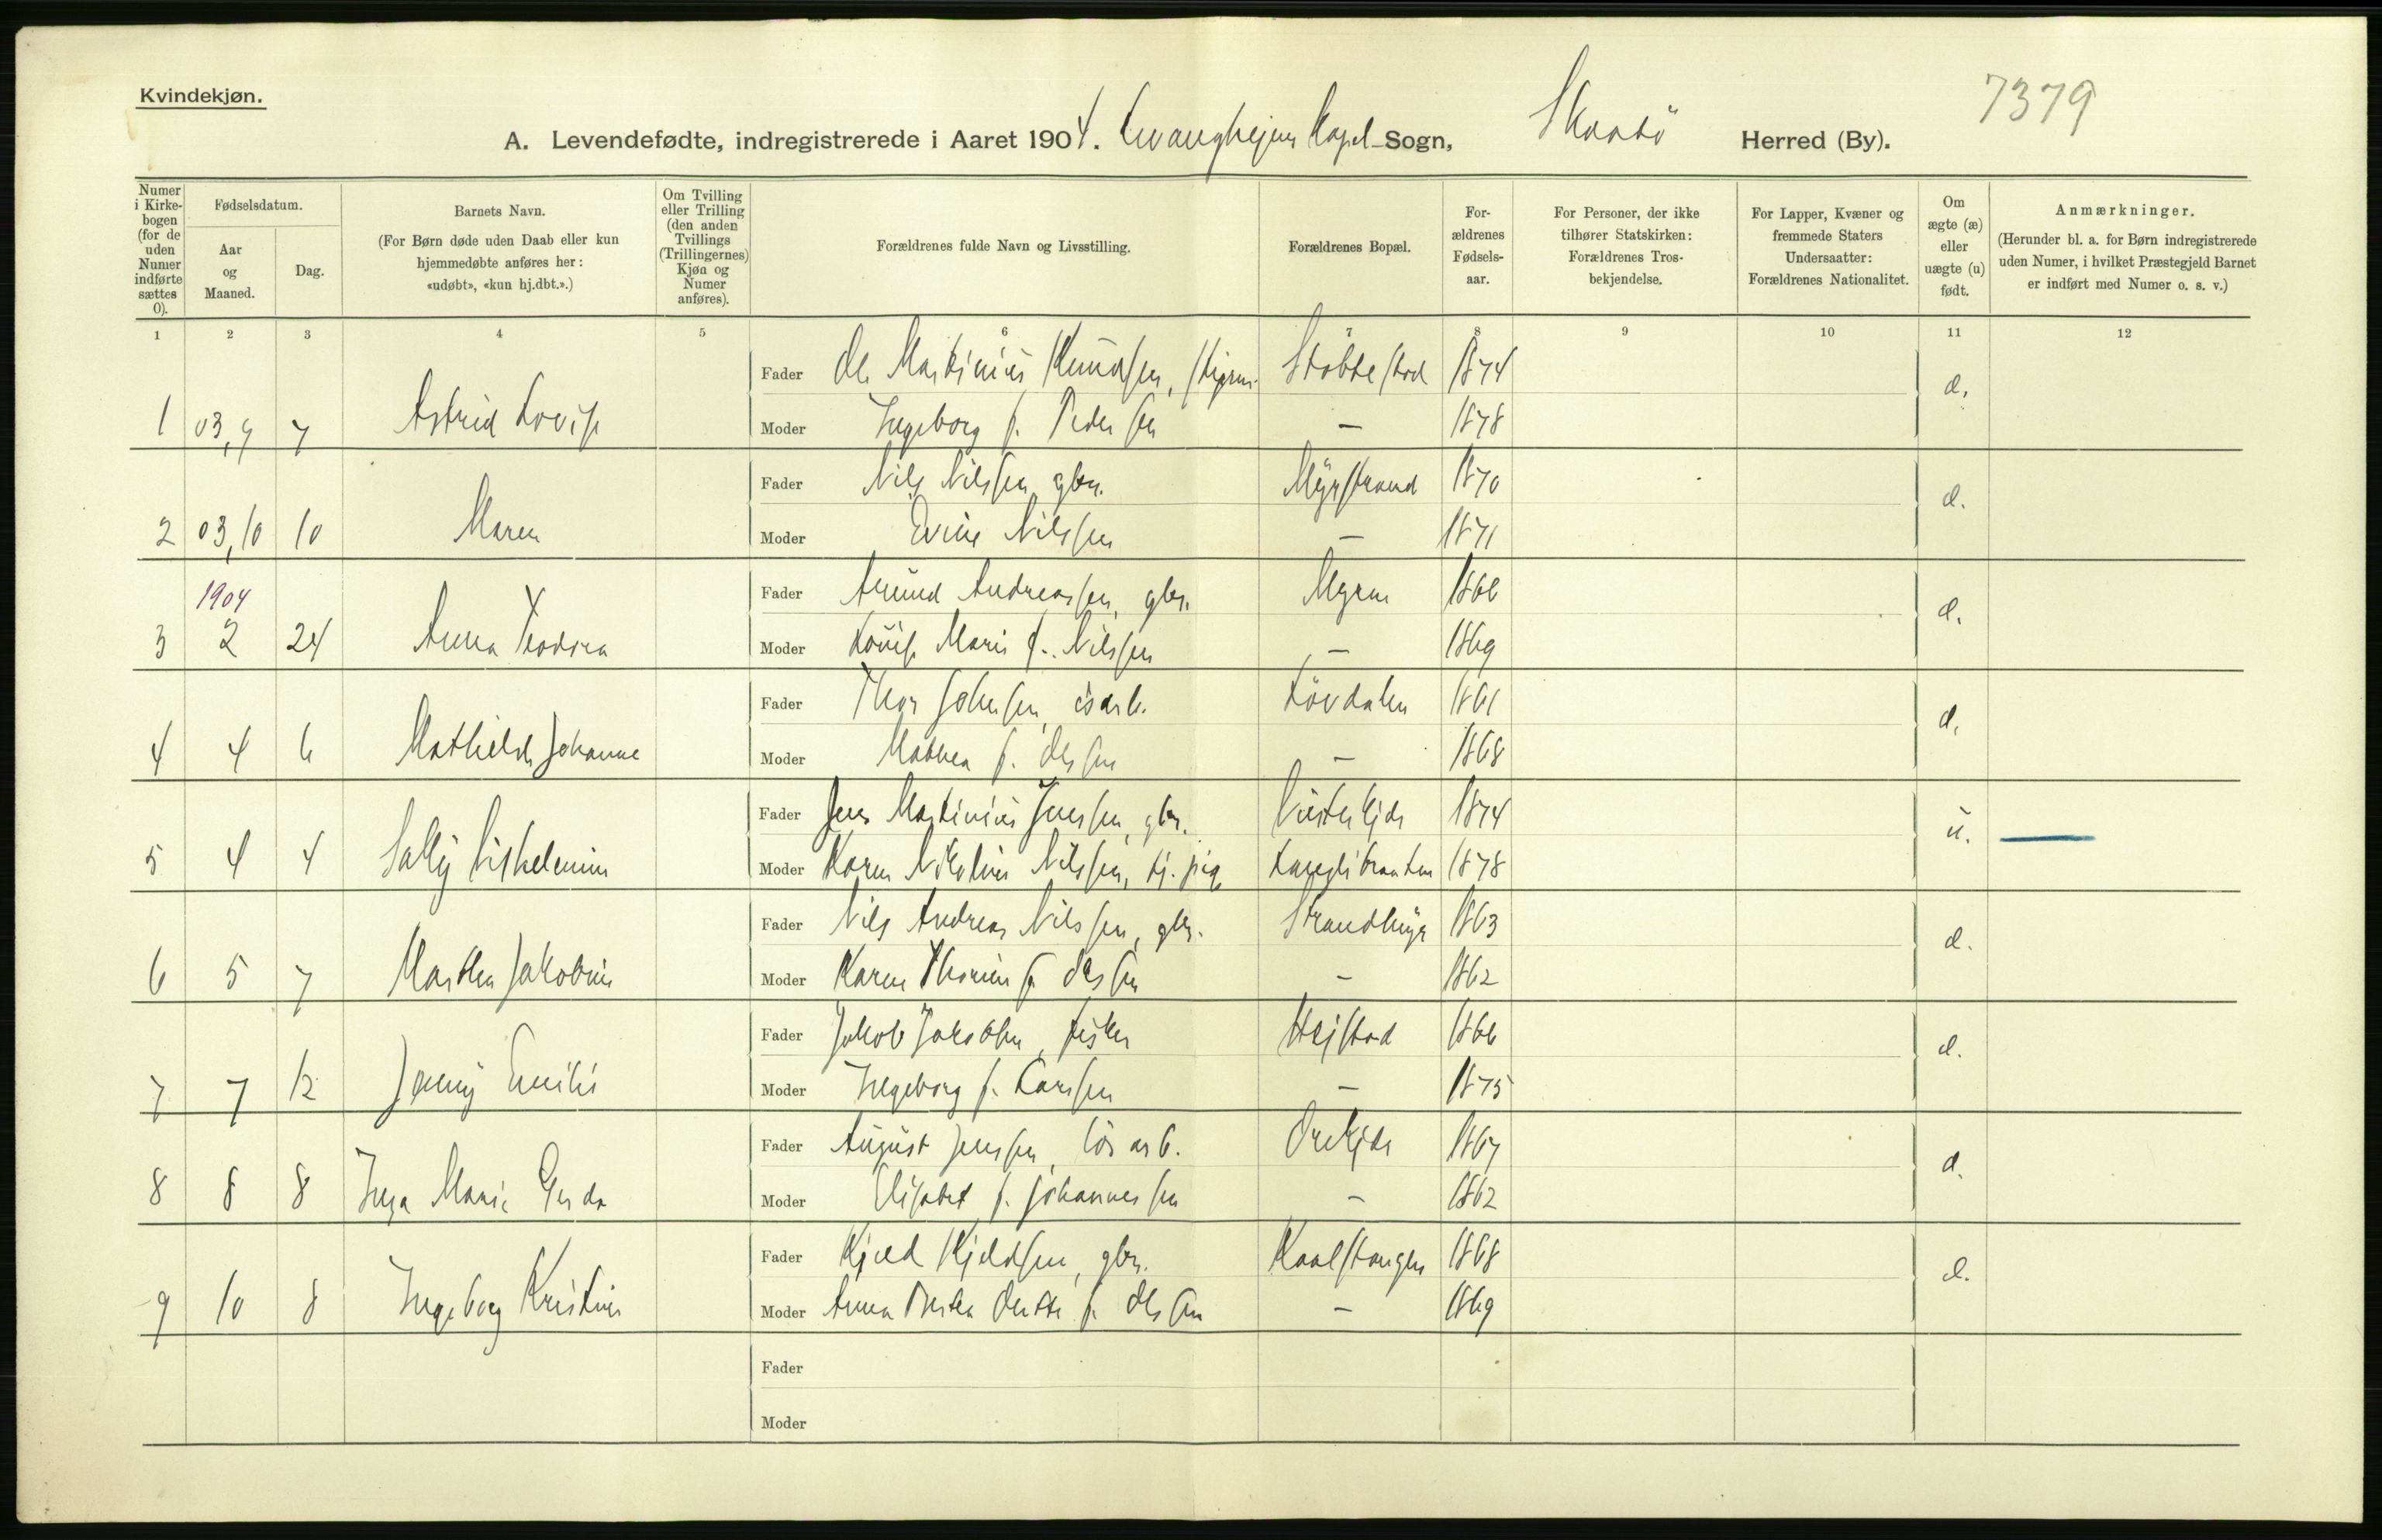 Kvindekjøn.
7379
A. Levendefødte, indregistrerede i Aaret 1904. Levangheiens Kapel Sogn, Skaatö Herred (By).
Numer i Kirke-bogen (for de uden Numer indførte sættes 0).
Fødselsdatum.
Aar og Maaned.
Dag.
Barnets Navn.
(For Børn døde uden Daab eller kun hjemmedøbte anføres her: «udøbt», «kun hj.dbt.».)
Om Tvilling eller Trilling (den anden Tvillings (Trillingernes) Kjøn og Numer anføres).
Forældrenes fulde Navn og Livsstilling.
Forældrenes Bopæl.
For-ældrenes Fødsels-aar.
For Personer, der ikke tilhører Statskirken: Forældrenes Tros-bekjendelse.
For Lapper, Kvæner og fremmede Staters Undersaatter: Forældrenes Nationalitet.
Om ægte (æ) eller uægte (u) født.
Anmærkninger.
(Herunder bl. a. for Børn indregistrerede uden Numer, i hvilket Præstegjeld Barnet er indført med Numer o. s. v.)
1 2 3 4 5 6 7 8 9 10 11 12
Fader Ole Martinius Knudsen, Støbbestad 1874
1 03,9 7 Astrid Lovise æ.
Moder Ingeborg f. Pedersen — 1878
Fader Nils Nilssen gbr. Myrstrand 1870
2 03,10 10 Maren æ.
Moder Evine Nilssen — 1871
1904
Fader Amund Andreassen, gbr. Myren 1866
3 2 24 Anna Teodora æ.
Moder Lovise Marie f. Nilssen — 1869
Fader Thor Johnsen, Løvdalen 1861
4 4 6 Mathilde Johanne æ.
Moder Mathea f. Olssen — 1868
Fader Jens Martinius Jenssen, gbr. 1874
5 4 4 Sally Vilhelmine u. —
Moder Karen Nikoline Nilssen, tj. pige 1878
Fader Nils Andreas Nilssen, gbr. 1863
6 5 7 Marthea Jakobine æ.
Moder Karen Thomine f. Olssen — 1862
Fader Jakob Jakobsen, fisker 1866
7 7 12 Jenny Emilie æ.
Moder Ingeborg f. Larssen — 1875
Fader August Jenssen, løsarb. 1867
8 8 8 Inga Marie Gerda æ.
Moder Elisabet f. Johannessen — 1862
Fader Kjeld Kjeldsen, gbr. Kaalstangen 1868
9 10 8 Ingeborg Kristine æ.
Moder Anna f. Olssen — 1869
Fader
Moder